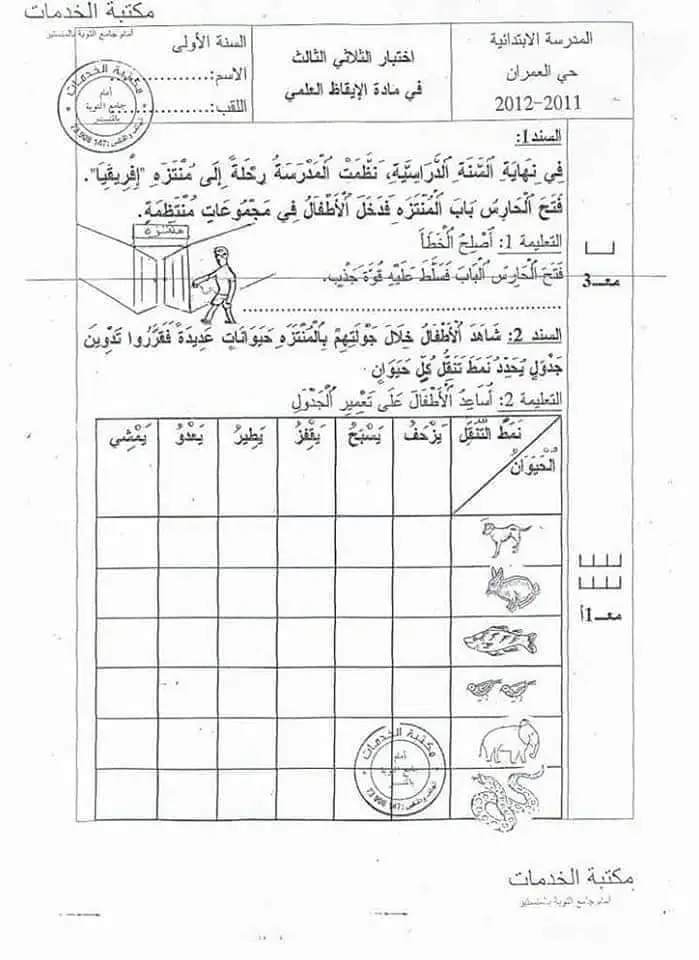 مكتبة الخدمات
أمام جامع التوبة بالمنستير
المدرسة الابتدائية
حي العمران
2011-2012
اختبار الثلاثي الثالث
في مادة الإيقاظ العلمي
السنة الأولى
الاسم:............
اللقب:............
مكتبة الخدمات
أمام
جامع التوبة
بالمنستير
السند1:
فِي نِهَايَةِ اَلسَّنَةِ اَلدِّرَاسِيَّةِ، نَظَّمَتْ اَلْمَدْرَسَةُ رِحْلَةً إِلَى مُنْتَزَهِ "إِفْرِيقِيَا".
فَتَحَ اَلْحَارِسُ بَابَ اَلْمُنْتَزَهِ فَدَخَلَ اَلْأَطْفَالُ فِي مَجْمُوعَاتٍ مُنْتَظِمَةٍ.
التعليمة 1: أُصْلِحُ اَلْخَطَأَ
فَتَحَ اَلْحَارِسُ اَلْبَابَ فَسَلَّطَ عَلَيْهِ قُوَّةَ جَذْبٍ.
مــعــ3
السند 2: شَاهَدَ اَلْأَطْفَالُ خِلَالَ جَوْلَتِهِمْ بِالْمُنْتَزَهِ حَيَوَانَاتٍ عَدِيدَةً فَقَرَّرُوا تَدْوِينَ
جَدْوَلٍ يُحَدِّدُ نَمَطَ تَنَقُّلِ كُلِّ حَيَوَانٍ
التعليمة 2: أُسَاعِدُ اَلْأَطْفَالَ عَلَى تَعْمِيرِ اَلْجَدْوَلِ
نَمَطُ اَلتَّنَقُّلِ يَزْحَفُ يَسْبَحُ يَقْفِزُ يَطِيرُ يَعْدُو يَمْشِي
اَلْحَيَوَانُ
مــعــ1أ
مكتبة الخدمات
أمام
جامع التوبة
مكتبة الخدمات
أمام جامع التوبة بالمنستير